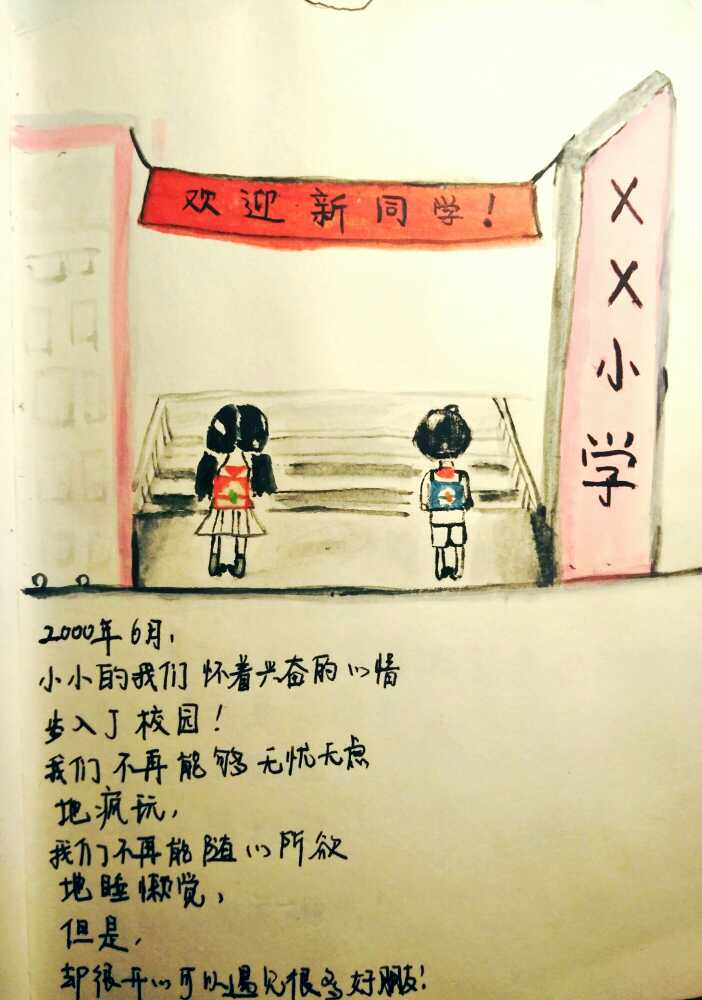 欢迎新同学！
XX小学
2000年6月，
小小的我们怀着兴奋的心情
步入了校园！
我们不再能够无忧无虑
地疯玩，
我们不再能随心所欲
地睡懒觉，
但是，
却很开心可以遇见很多好朋友！